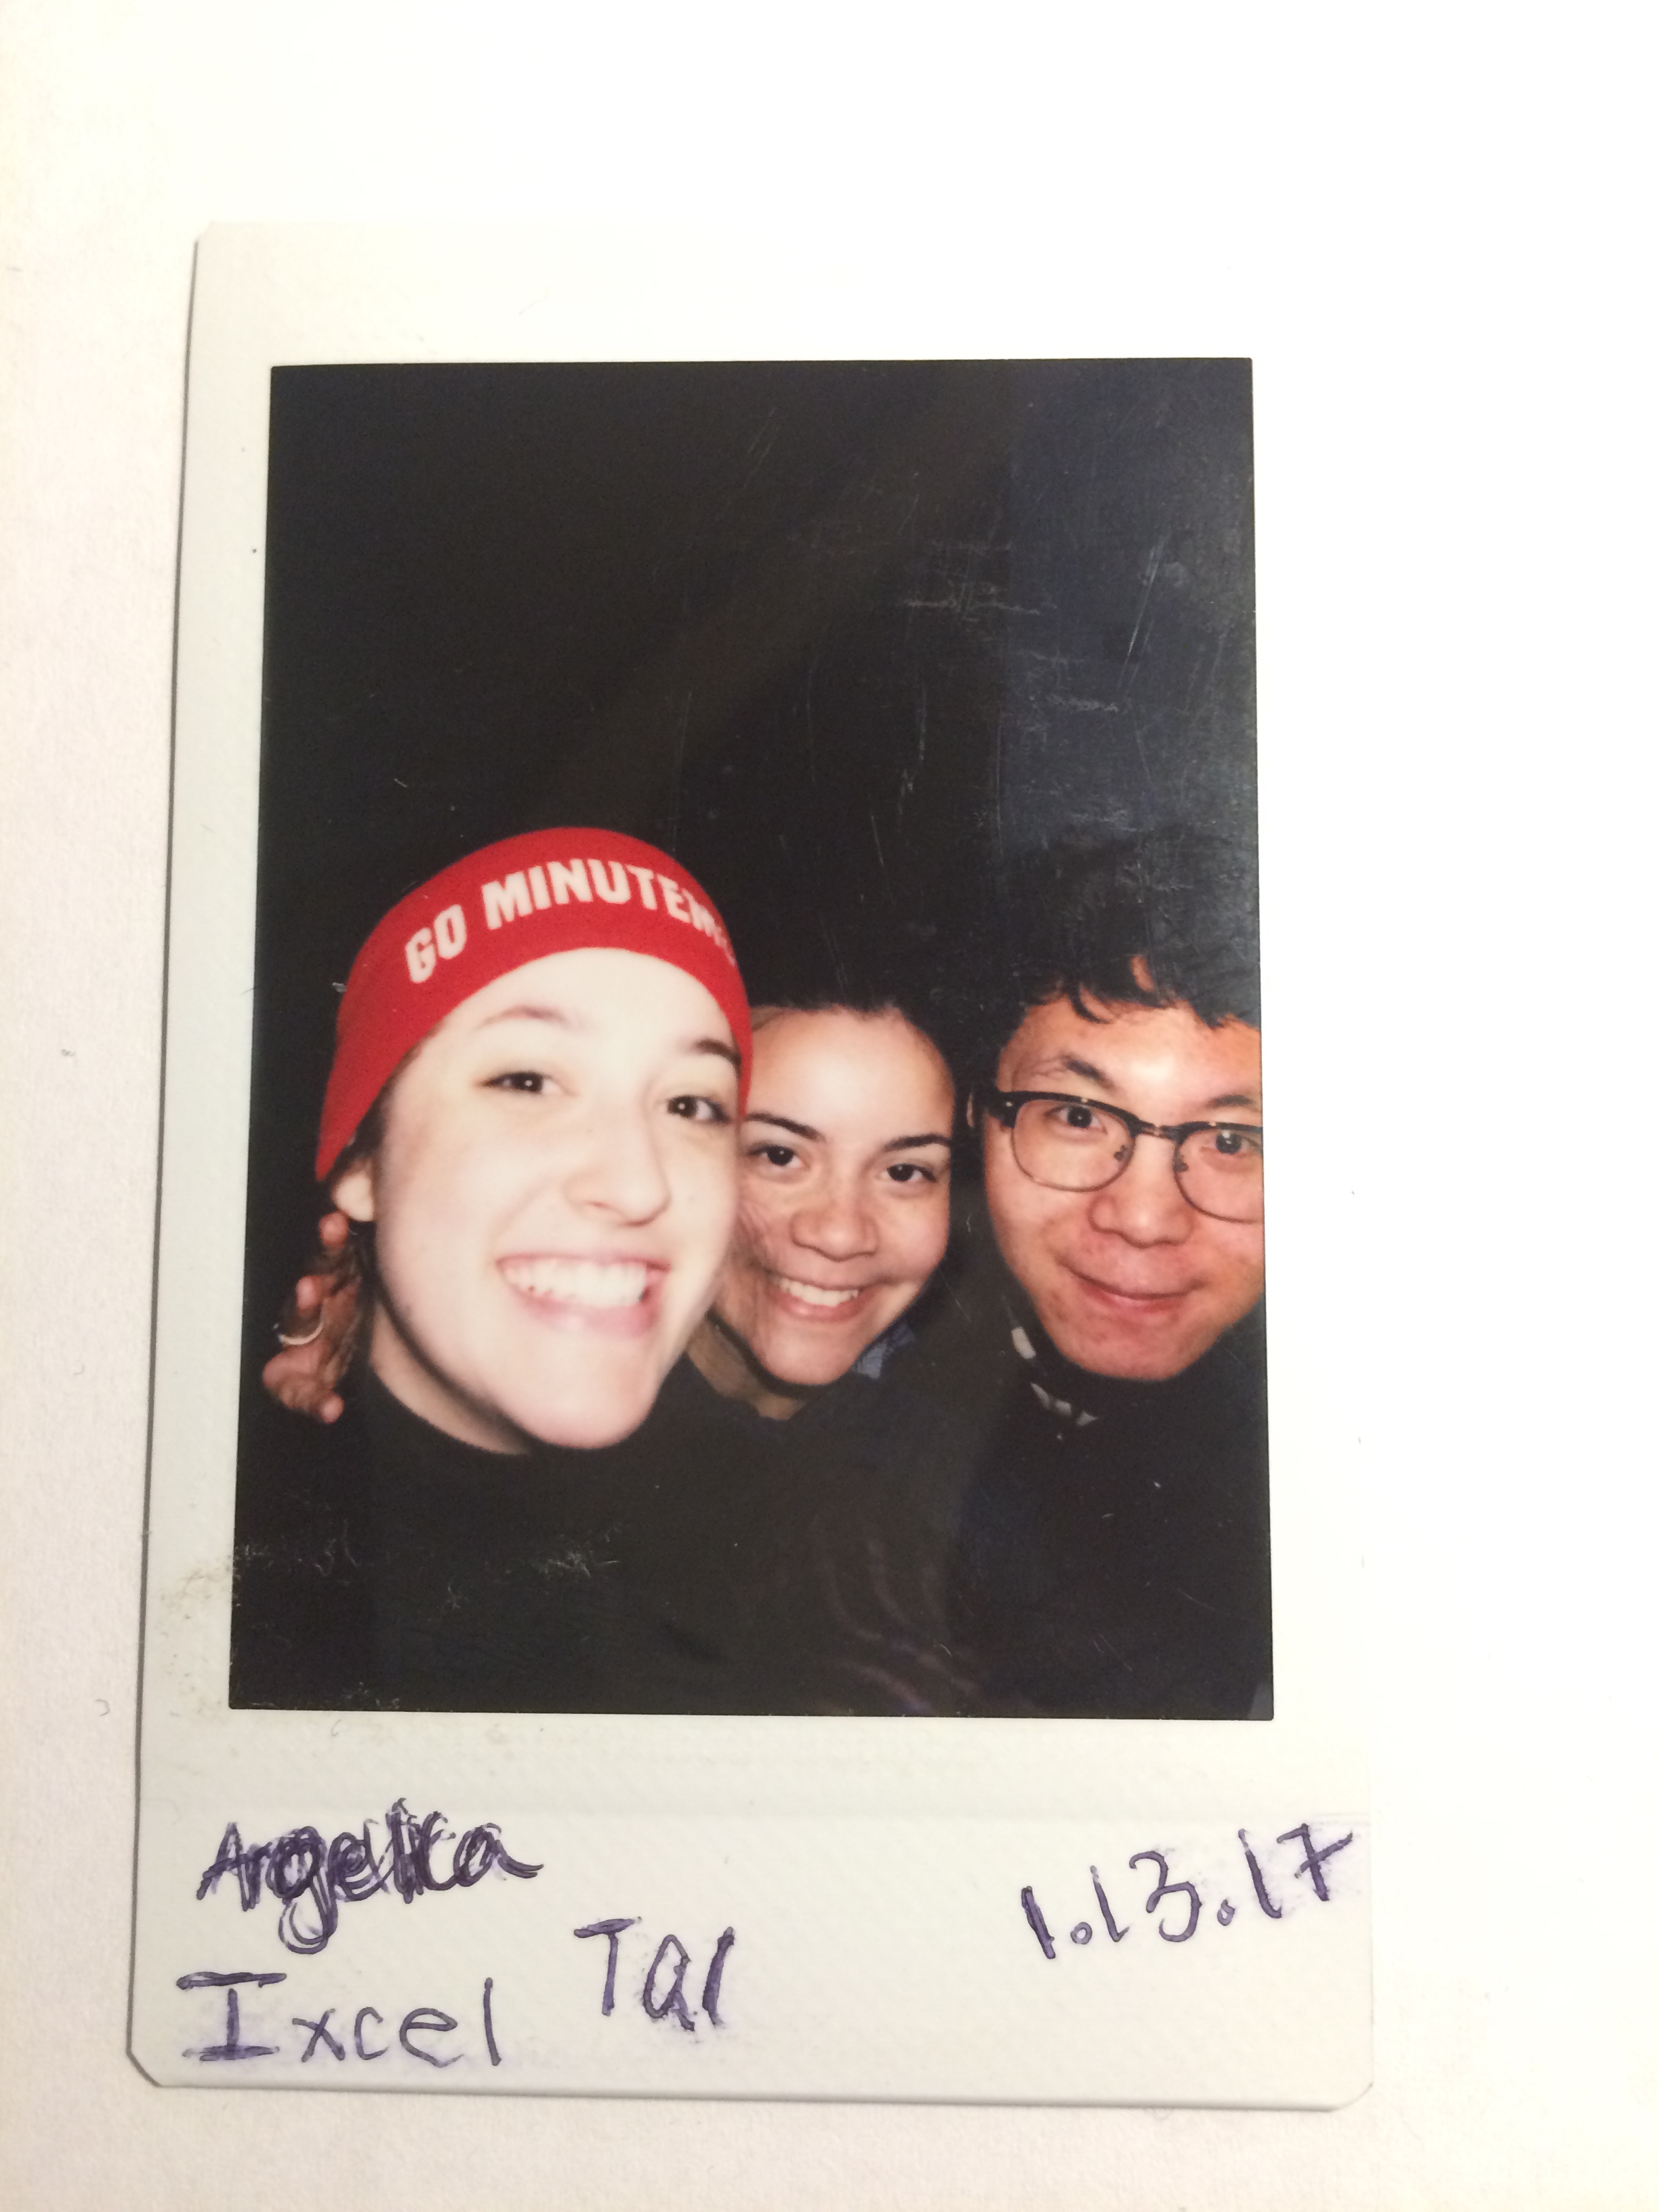 GO MINUTEM
Angelica
Ixcel
Tal
1.13.17